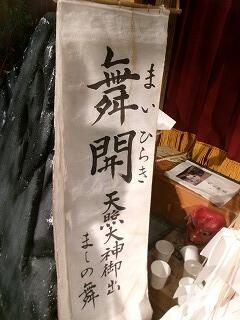 舞開
まいひらき
天照大神御出
ましの舞